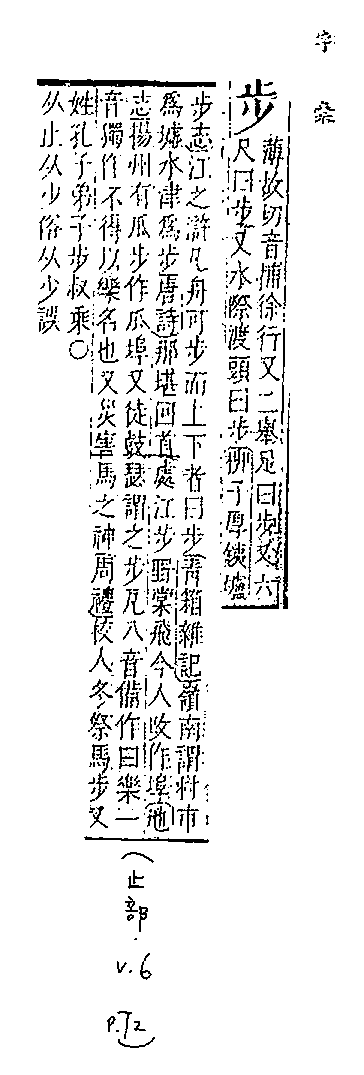 字彙
步
薄故切音捕徐行又二舉足曰步又六
尺曰步又水際渡頭曰步柳子厚鐵爐
步志江之滸凡舟可步而上下者曰步靑箱雜記嶺南謂村市
爲墟水津爲步唐詩那堪回首處江步野棠飛今人改作埠地
志揚州有瓜步作瓜埠又徒鼓瑟謂之步凡八音備作曰樂一
音獨作不得以樂名也又災害馬之神周禮校人冬祭馬步又
姓孔子弟子步叔乘○
从止从少俗从少誤
(止部
v.6